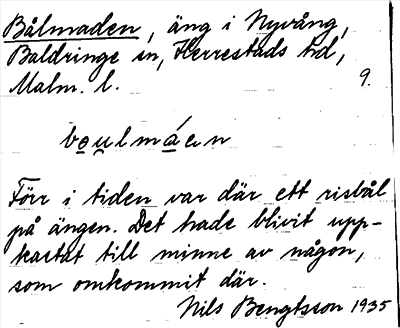 Bålmaden, äng i Nyvång,
Baldringe sn, Herrestads hd,
Malm. l. 9.
boulmáen
Förr i tiden var där ett risbål
på ängen. Det hade blivit upp-
kastat till minne av någon,
som omkommit där.
Nils Bengtsson 1935